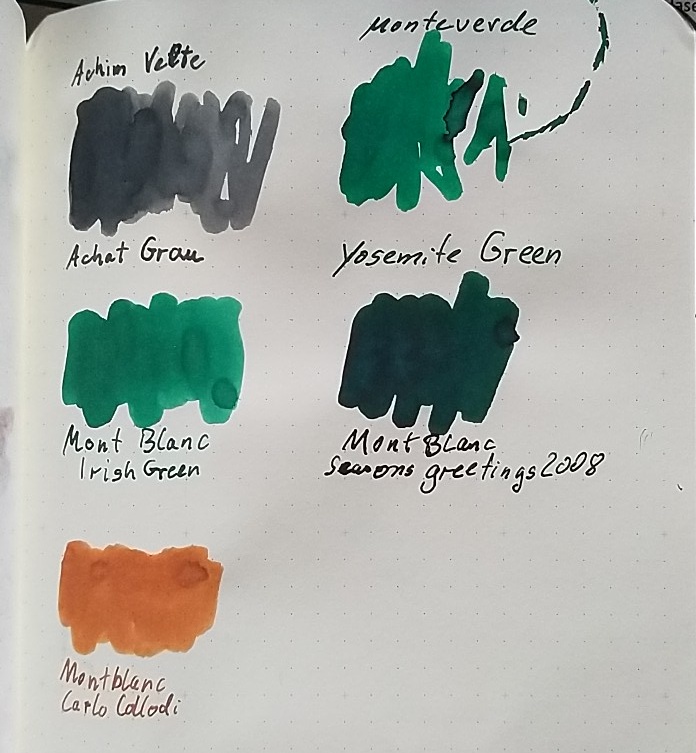 Achim Vette
Achat Grau
Monteverde
Yosemite Green
Mont Blanc
Irish Green
Mont Blanc
Seasons greetings 2008
Montblanc
Carlo Collodi